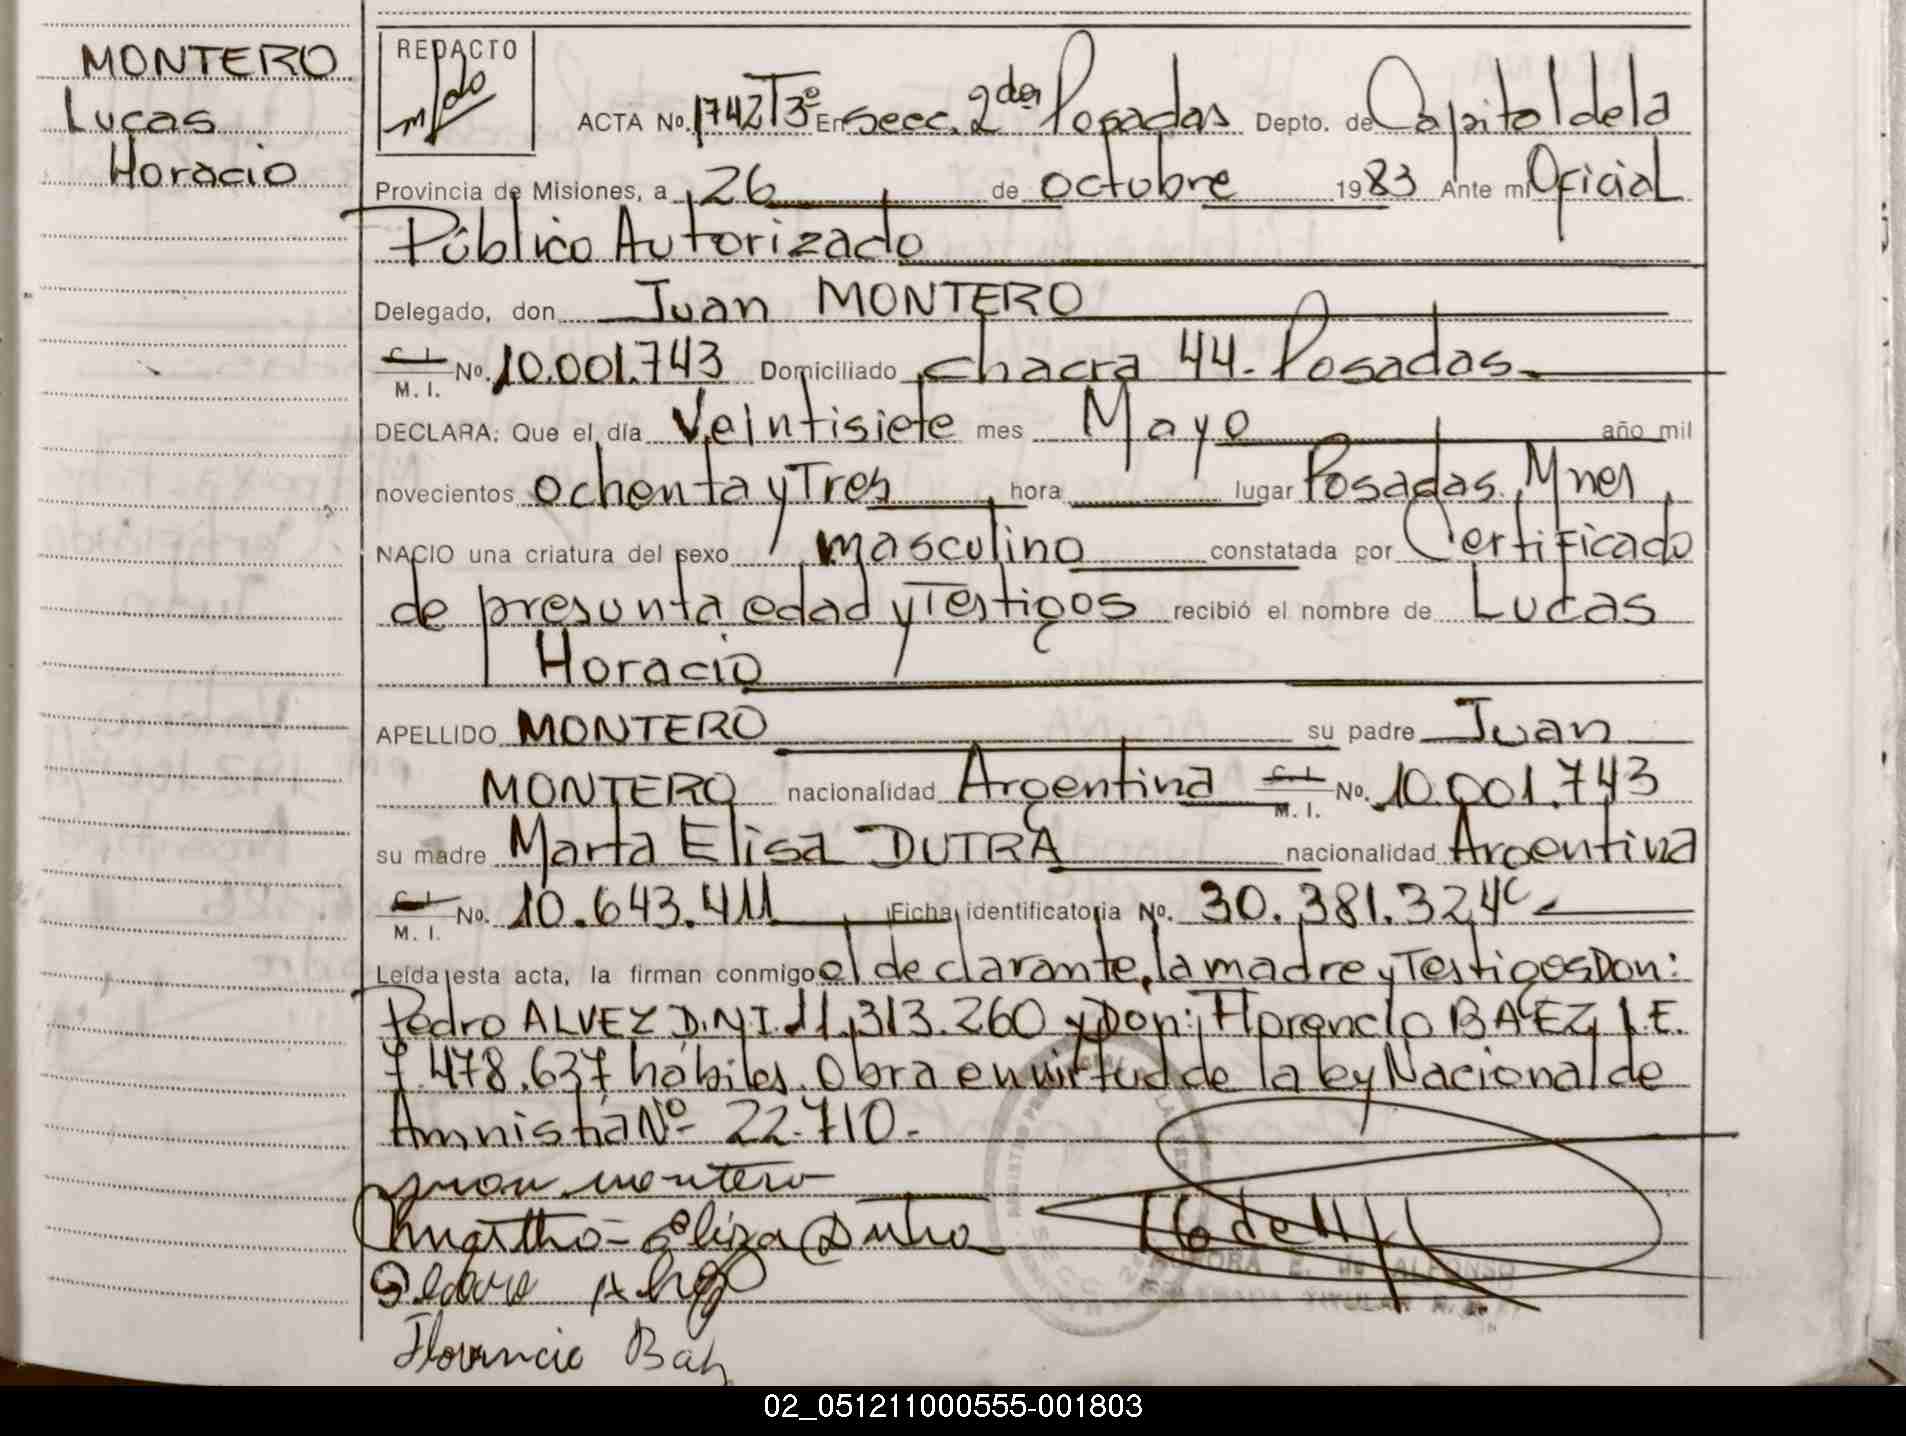 MONTERO
Lucas
Horacio
REDACTO
ACTA No. 1742 T3º En secc. 2da Posadas Depto. de Capital de la
Provincia de Misiones, a 26 de octubre 1983 Ante mi Oficial
Público Autorizado
Delegado, don Juan MONTERO
C. I. M. I. No. 10.001.743 Domiciliado chacra 44. Posadas.
DECLARA: Que el día Veintisiete mes Mayo año mil
novecientos ochenta y Tres hora lugar Posadas, Mnes
NACIO una criatura del sexo masculino constatada por Certificado
de presunta edad y Testigos recibió el nombre de Lucas
Horacio
APELLIDO MONTERO su padre Juan
MONTERO nacionalidad Argentina C. I. M. I. No. 10.001.743
su madre Marta Elisa DUTRA nacionalidad Argentina
C. I. M. I. No. 10.643.411 Ficha identificatoria No. 30.381.324
Leída esta acta, la firman conmigo el declarante, la madre y Testigos Don:
Pedro ALVEZ D.N.I. 11.313.260 y Don: Florencio BAEZ L.E.
7.478.637 hábiles. Obra en virtud de la ley Nacional de
Amnistía Nº 22.710.-
Juan montero
martha Eliza Dutra
Florencio
02_051211000555-001803